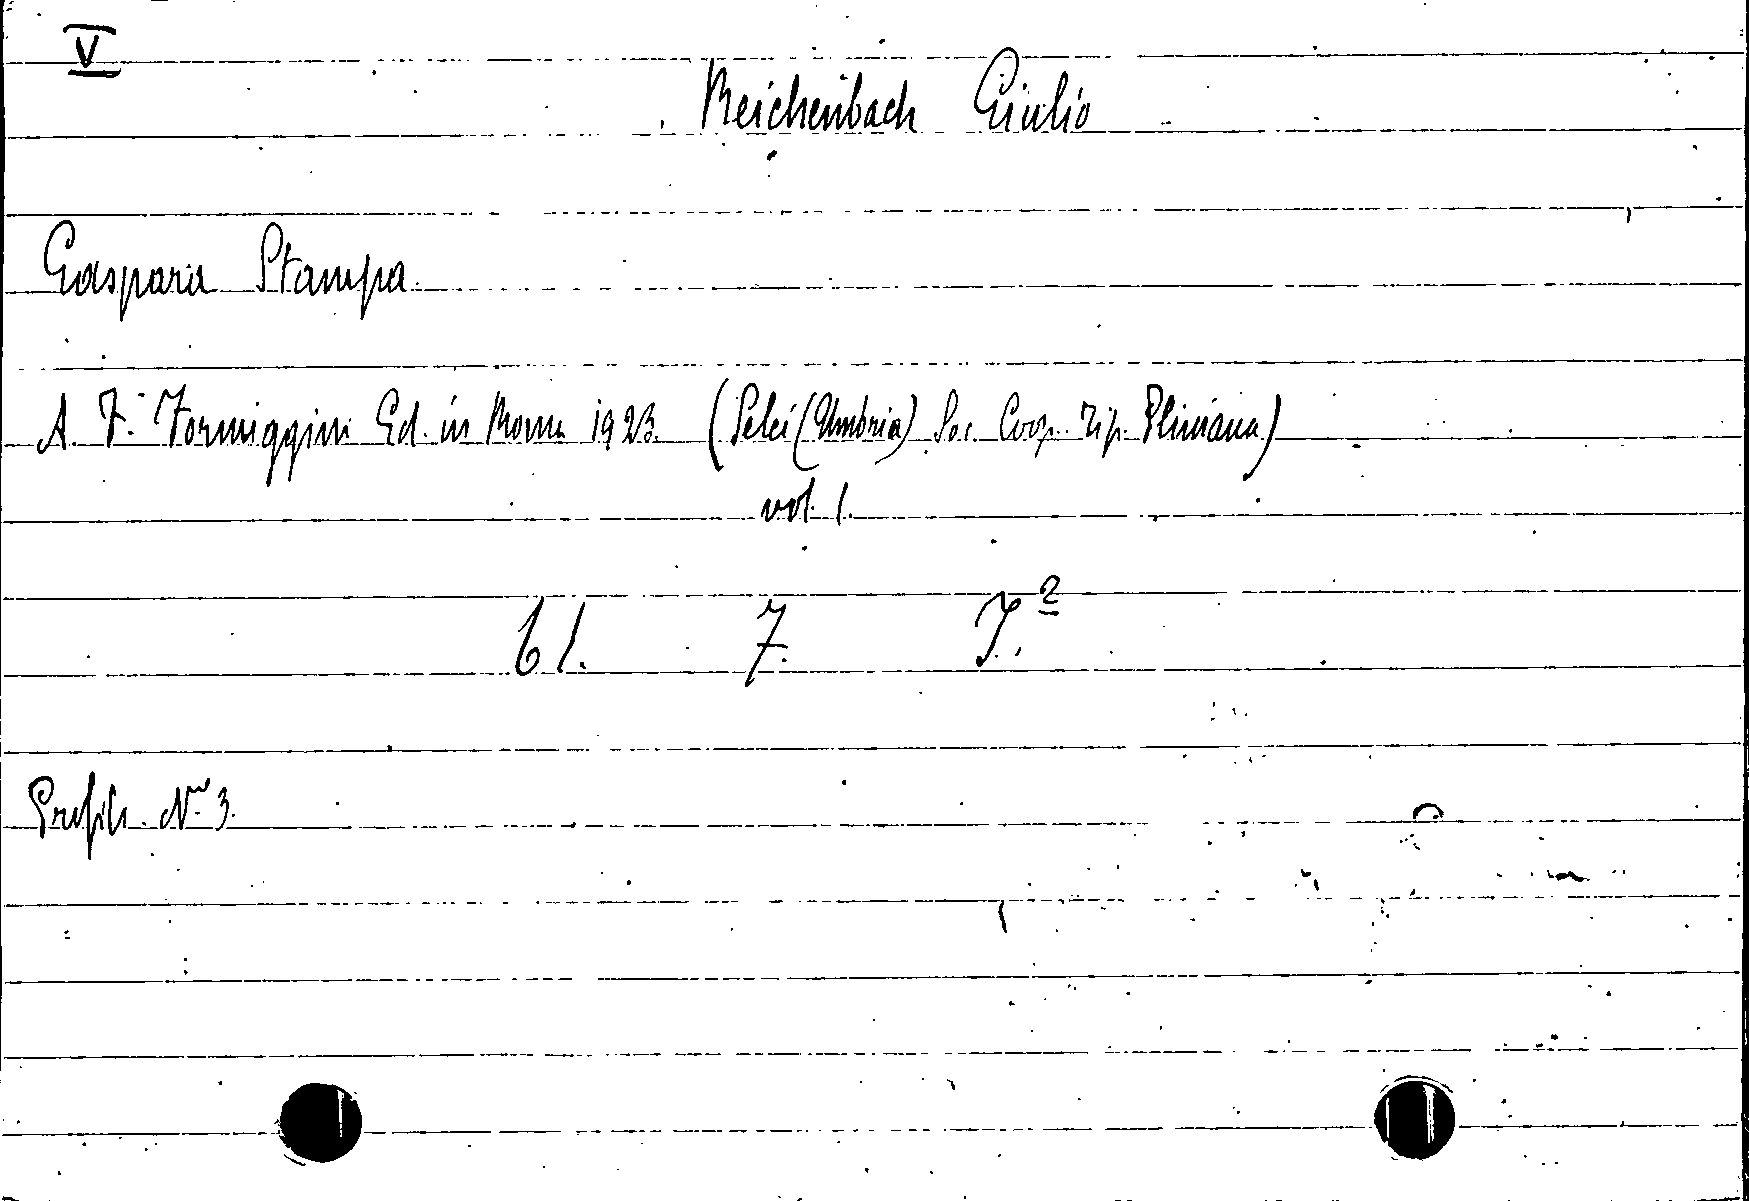 V
Reichenbach Giulio
Gaspara Stampa
A. F. Formiggini Ed. in Roma 1923. (Selci (Umbria) Soc. Coop. Tip. Pliniana)
vol. 1.
61. 7.
Profili. N. 3.